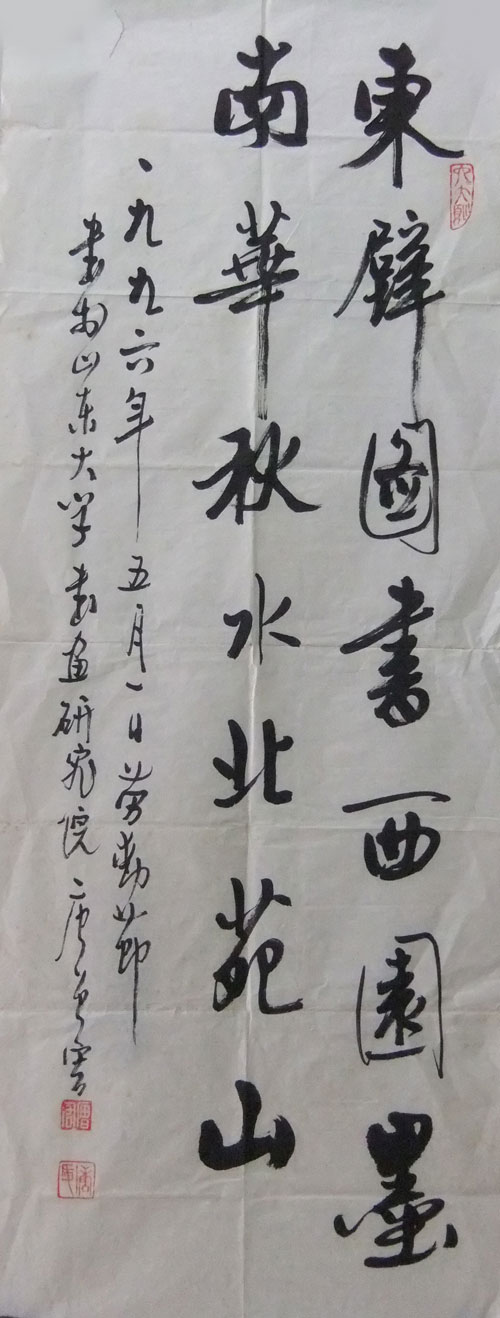 東壁圖書西園墨
南華秋水北苑山
一九九六年五月一日劳動节
書於山东大学書画研究院唐